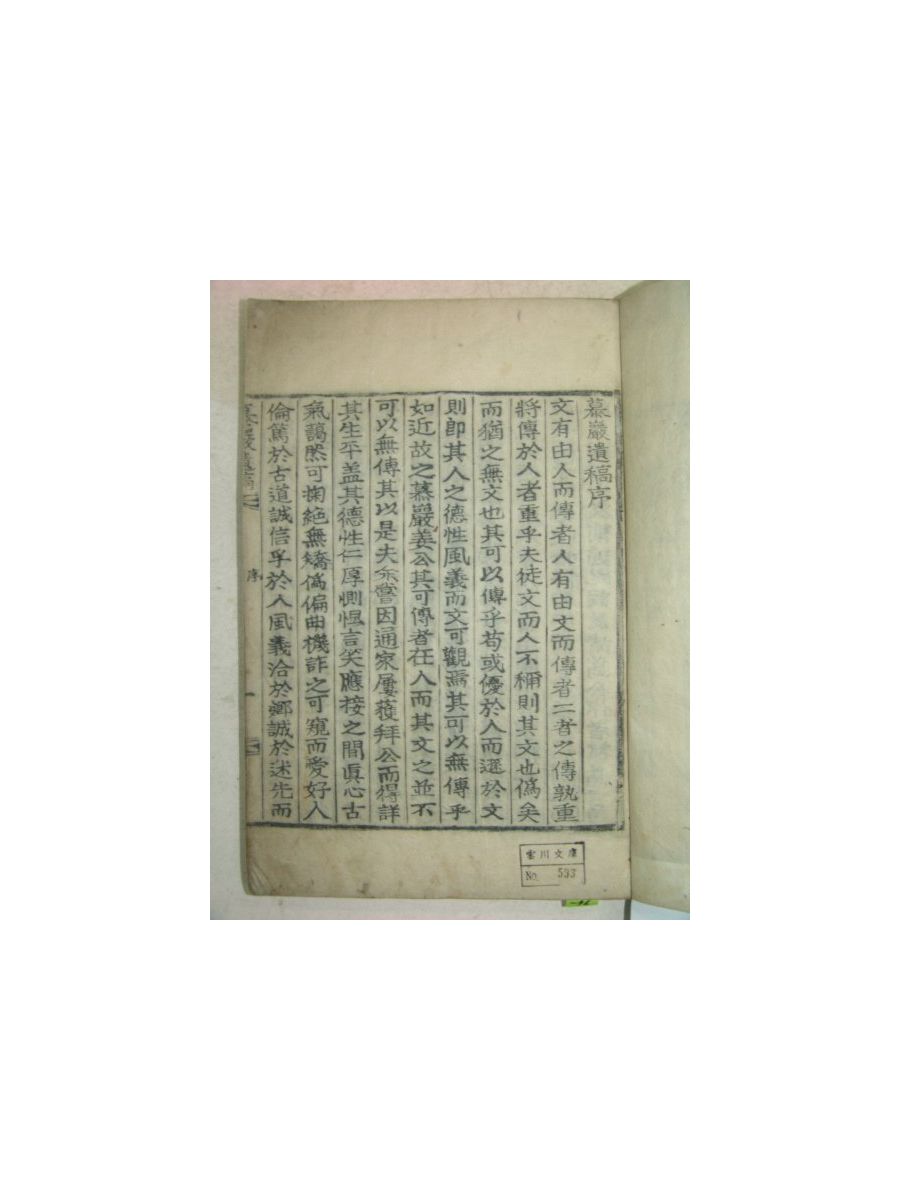 慕巖遺稿序
文有由人而傳者人有由文而傳者二者之傳孰重
將傳於人者重乎夫徒文而人不稱則其文也僞矣
而猶之無文也其可以傳乎苟或優於人而遜於文
則卽其人之德性風義而文可觀焉其可以無傳乎
如近故之慕巖姜公其可傳者在人而其文之並不
可以無傳其以是夫余嘗因通家屢獲拜公而得詳
其生平盖其德性仁厚惻怛言笑應接之間眞心古
氣藹然可掬絶無矯僞偏曲機詐之可窺而愛好人
倫篤於古道誠信孚於人風義洽於鄕誠於述先而
序
雪川文庫
No. 533